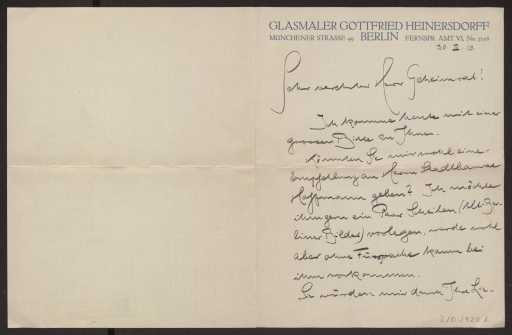 GLASMALER GOTTFRIED HEINERSDORFF
MÜNCHENER STRASSE 49 BERLIN FERNSPR. AMT VI, No.
30. X.
Sehr verehrter Herr Geheimrat!
Ich komme heute mit einer
grossen Bitte zu Ihnen.
Könnten Sie mir wohl eine
Empfehlung an Herrn Stadtbaurat
Hoffmann geben? Ich möchte
ihm gern ein Paar Scheiben (Alt-Ber-
liner Bilder) vorlegen, werde wohl
aber ohne Fürsprache kaum bei
ihm vorkommen.
Sie würden mir durch Ihre